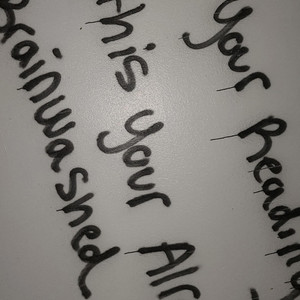 your Readin
this your Alr
Brainwashed